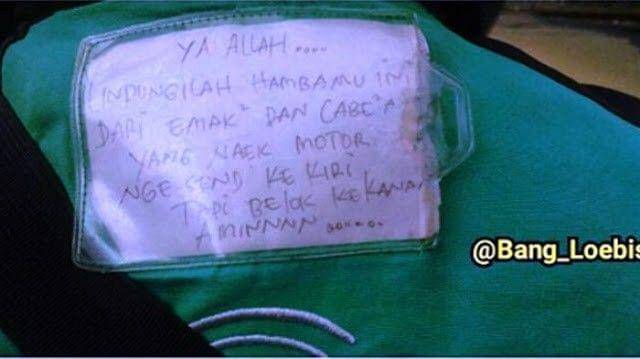 YA ALLAH....
LINDUNGILAH HAMBAMU INI
DARI EMAK² DAN CABE²A
YANG NAEK MOTOR
NGE SEND KE KIRI
TAPI BELOK KE KANAN
AMINNNN.......
@Bang_Loebis